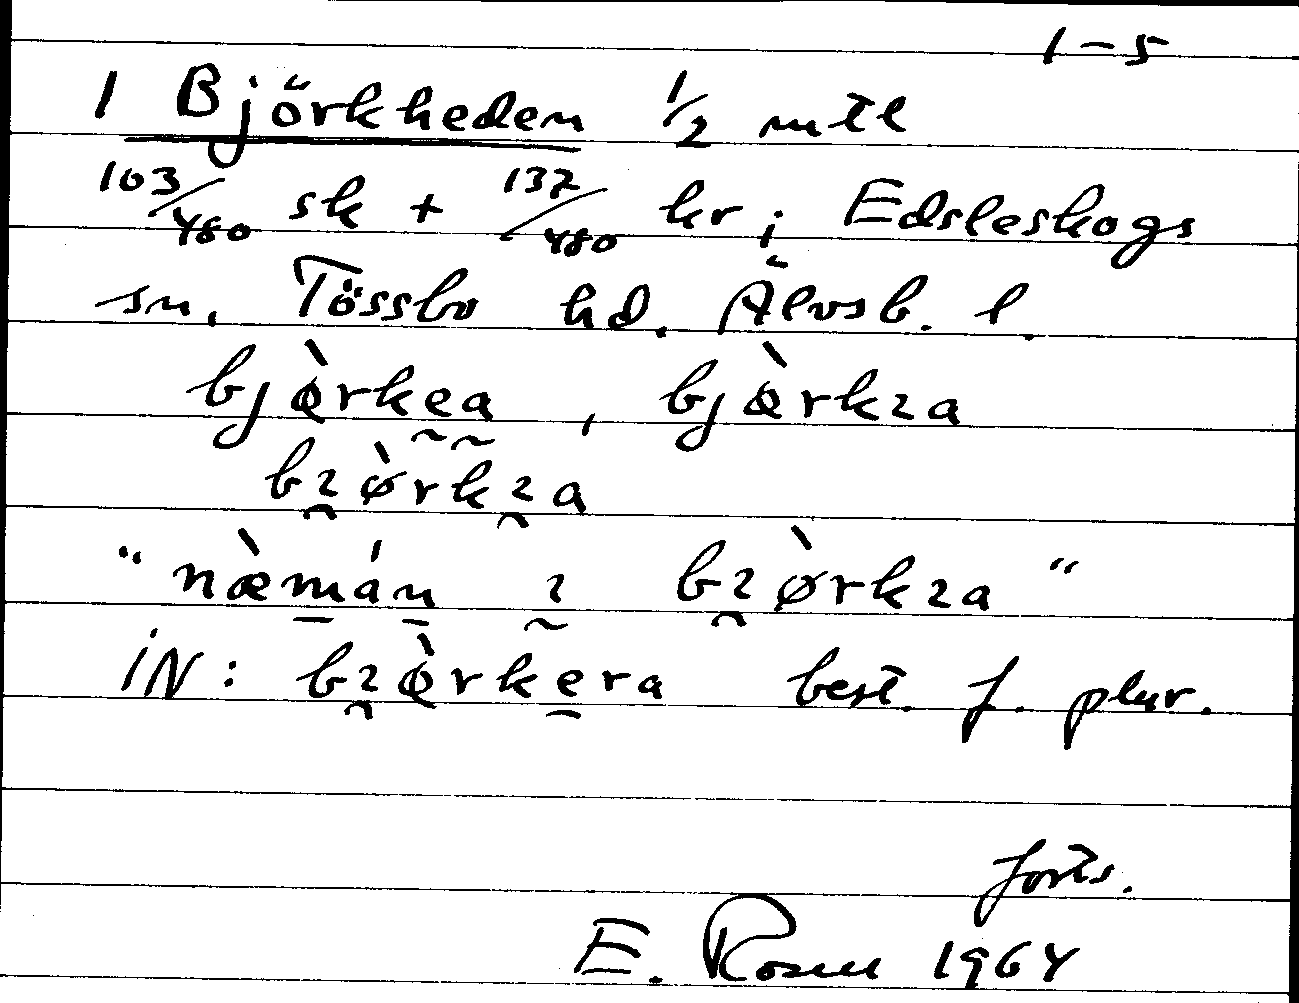 1-5
1 Björkheden 1/2 mtl
103/480 sk + 137/480 kr i Edsleskogs
sn. Tössbo hd. Älvsb. l.
bjø̀rkea, bjø̀rkɿa
bɿø̀rkɿa
"næ̀mán ɿ bɿø̀rkɿa"
iN: bɿø̀rkera best. f. plur.
forts.
E. Rosen 1964